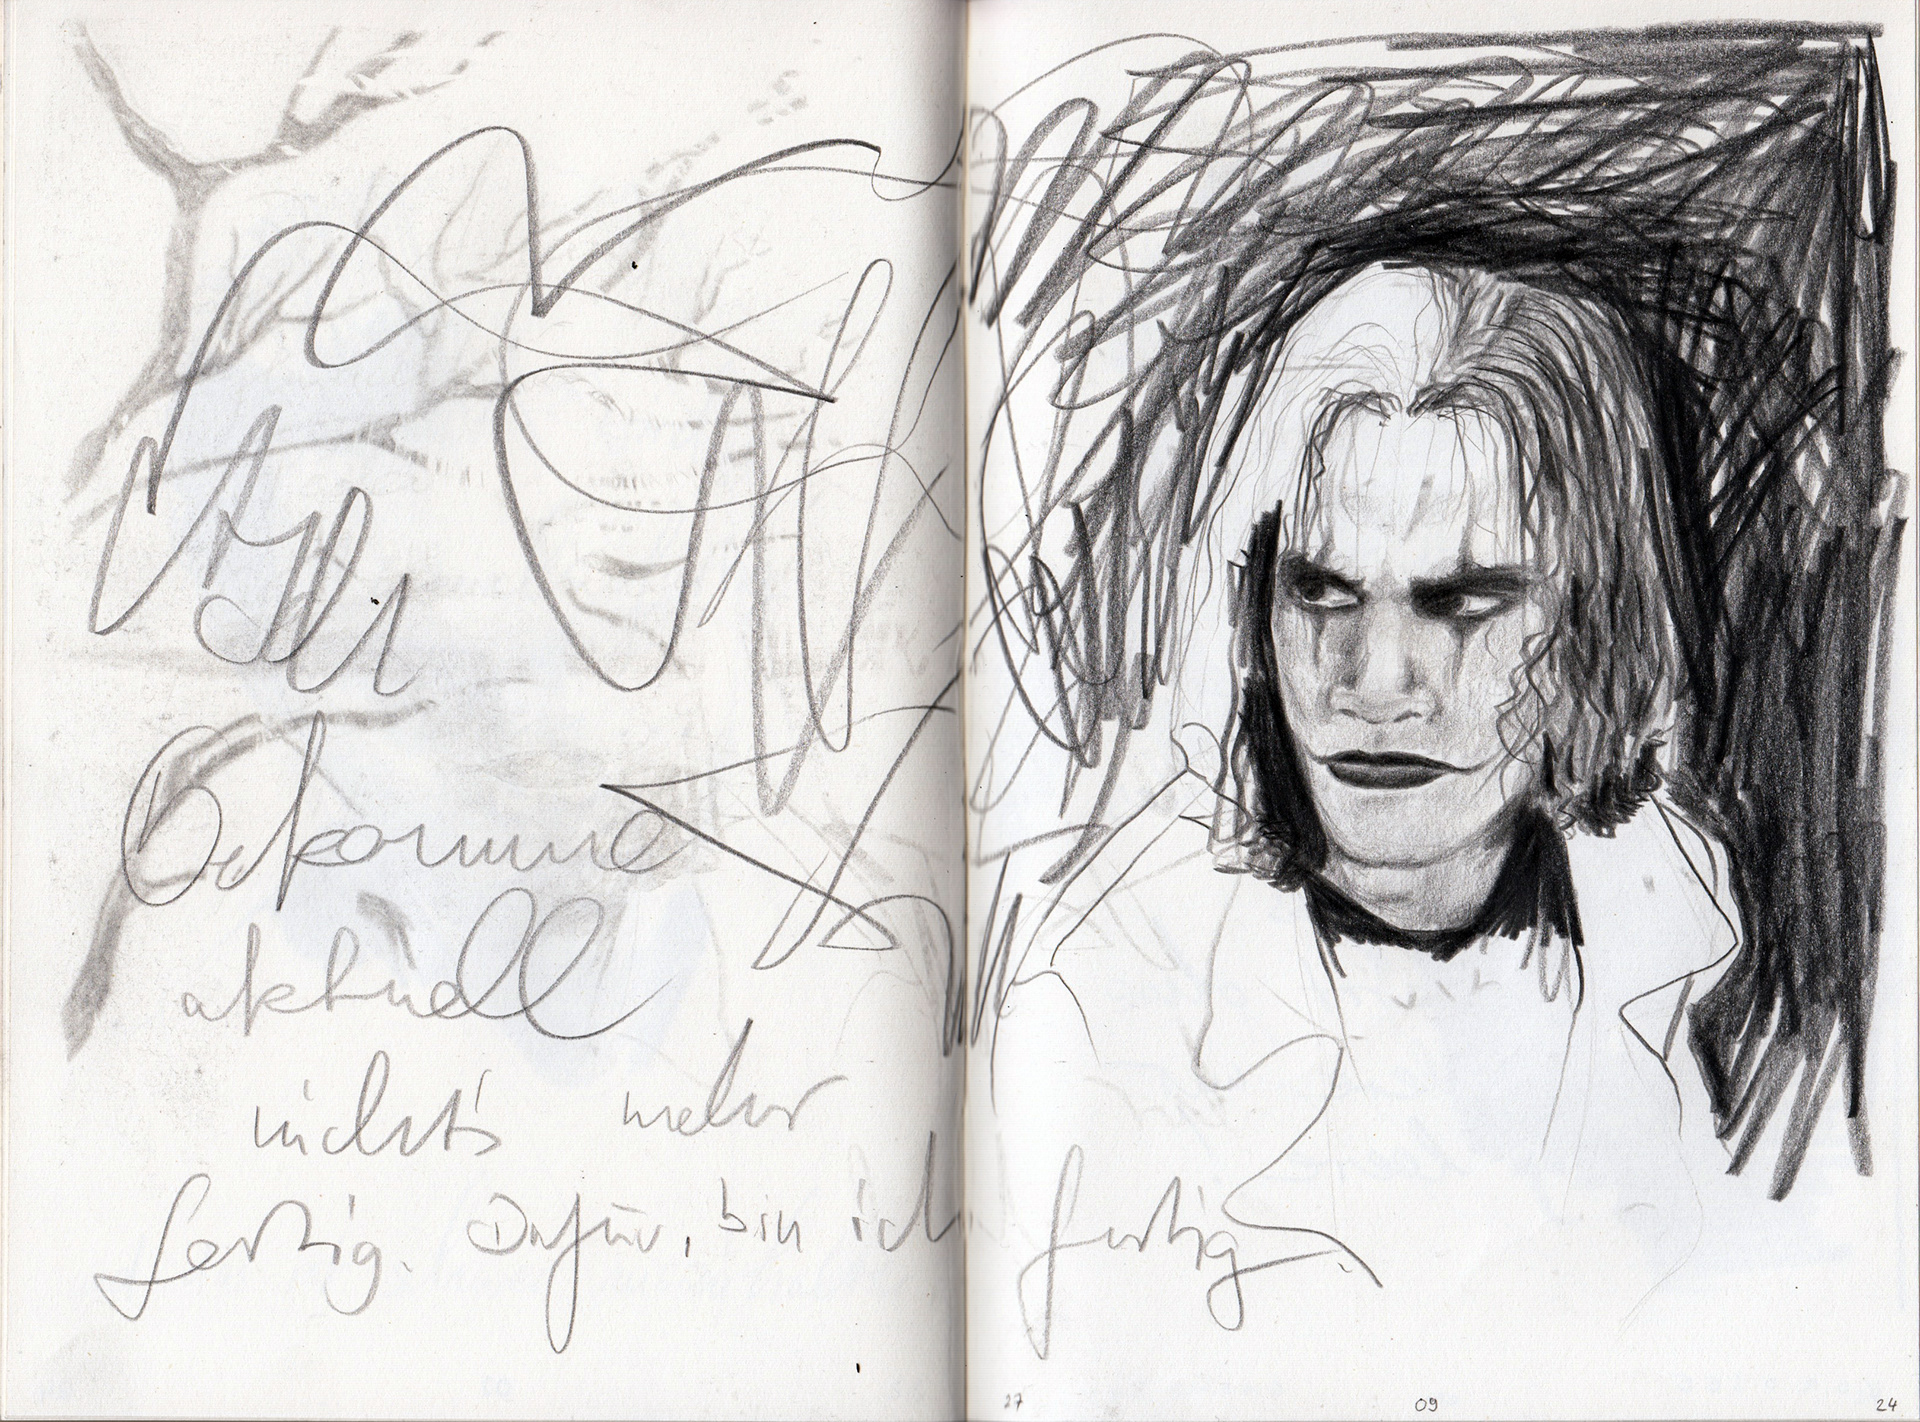 Ich
Bekomme
aktuell
nichts mehr
fertig. Dafür, bin ich fertig.
27 09 24